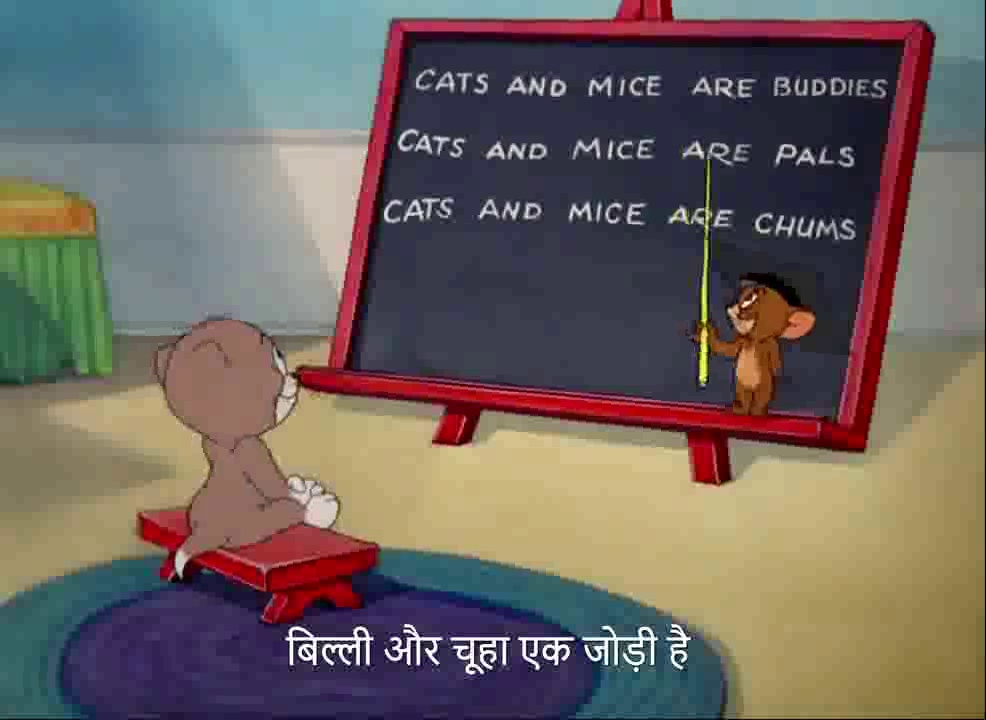 CATS AND MICE ARE BUDDIES
CATS AND MICE ARE PALS
CATS AND MICE ARE CHUMS
बिल्ली और चूहा एक जोड़ी है